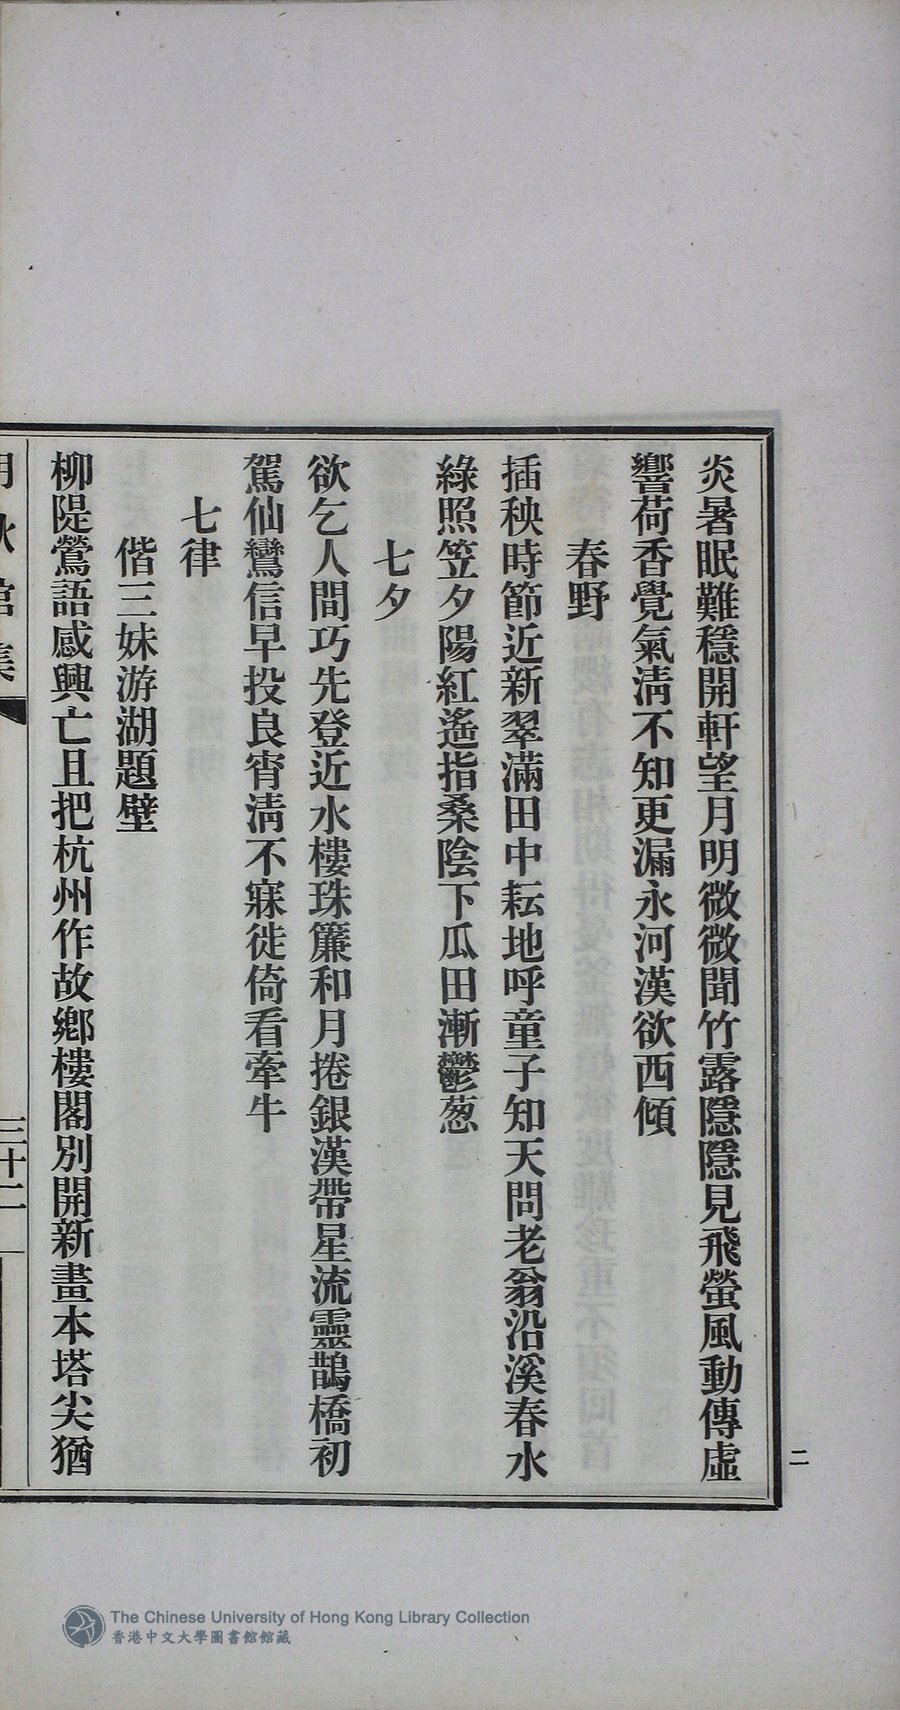 炎暑眠難穩開軒望月明微微聞竹露隱隱見飛螢風動傳虛
響荷香覺氣淸不知更漏永河漢欲西傾
春野
插秧時節近新翠滿田中耘地呼童子知天問老翁沿溪春水
綠照笠夕陽紅遙指桑陰下瓜田漸鬱葱
七夕
欲乞人間巧先登近水樓珠簾和月捲銀漢帶星流靈鵲橋初
駕仙鸞信早投良宵淸不寐徙倚看牽牛
七律
偕三妹游湖題壁
柳隄鶯語感興亡且把杭州作故鄉樓閣別開新畫本塔尖猶
三十二
二
The Chinese University of Hong Kong Library Collection
香港中文大學圖書館館藏